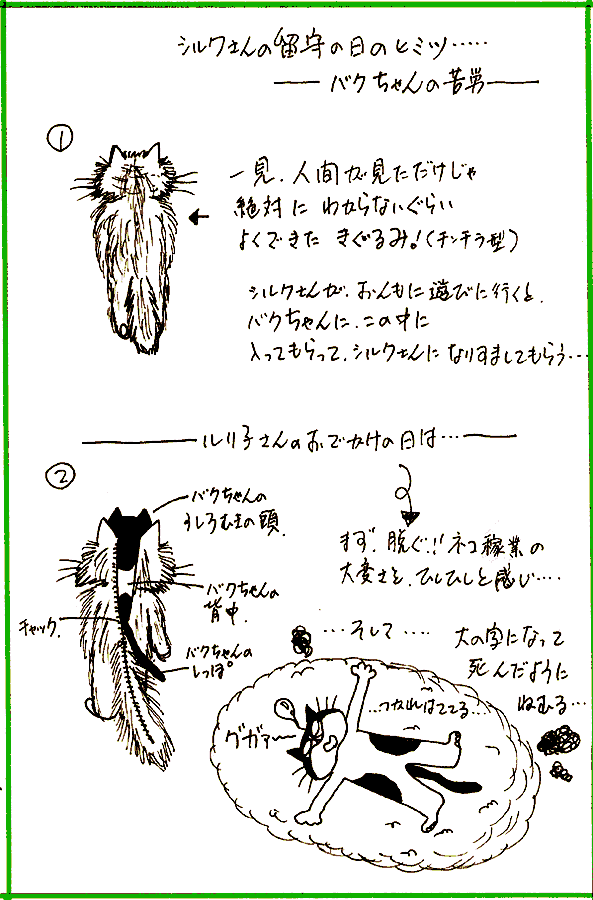 シルクさんの留守の日のヒミツ‥‥‥
── バクちゃんの苦労 ──
①
一見、人間が見ただけじゃ
絶対に わからないぐらい
よくできた きぐるみ!(チンチラ型)
シルクさんが、おんもに遊びに行くと、
バクちゃんに、この中に
入ってもらって、シルクさんに なりすましてもらう‥‥
── ルリ子さんのおでかけの日は‥‥ ──
②
バクちゃんの
うしろむきの頭.
バクちゃんの
背中.
チャック.
バクちゃんの
しっぽ。
まず、脱ぐ!! ネコ稼業の
大変さを、ひしひしと感じ‥‥
‥‥そして‥‥
大の字になって
死んだように
ねむる‥‥
‥つかれはててる‥‥
グガァ〜